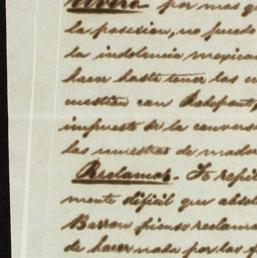 por mas q
la posesion, no puedo
la indolencia mexican
hacer hasta tener las c
cuestion con
impuesto de la convers
las muestras de mader
Reclamos. Te repit
mente dificil que absol
Barron piense reclama
de hacer nada por las f